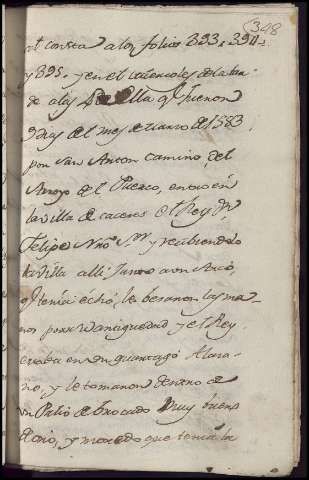 348
at consta a los folios 393, 394,
y 395. y en el miercoles de la tar-
de a las de ella q. fueron
dias del mes de marzo de 1583
por San Anton camino del
Arroyo del Puerco, entro en
la villa de caceres el Rey Dn
Felipe Nro. Sor y recibiendolo
la villa alli Junto a un Arco,
q. tenia echo, le besaron las ma-
nos por su antiguedad y el Rey
en un quartago Alaza-
no, y le tomaron dentro de
un Palio de brocado muy bueno
de oro, y morado que tenia la